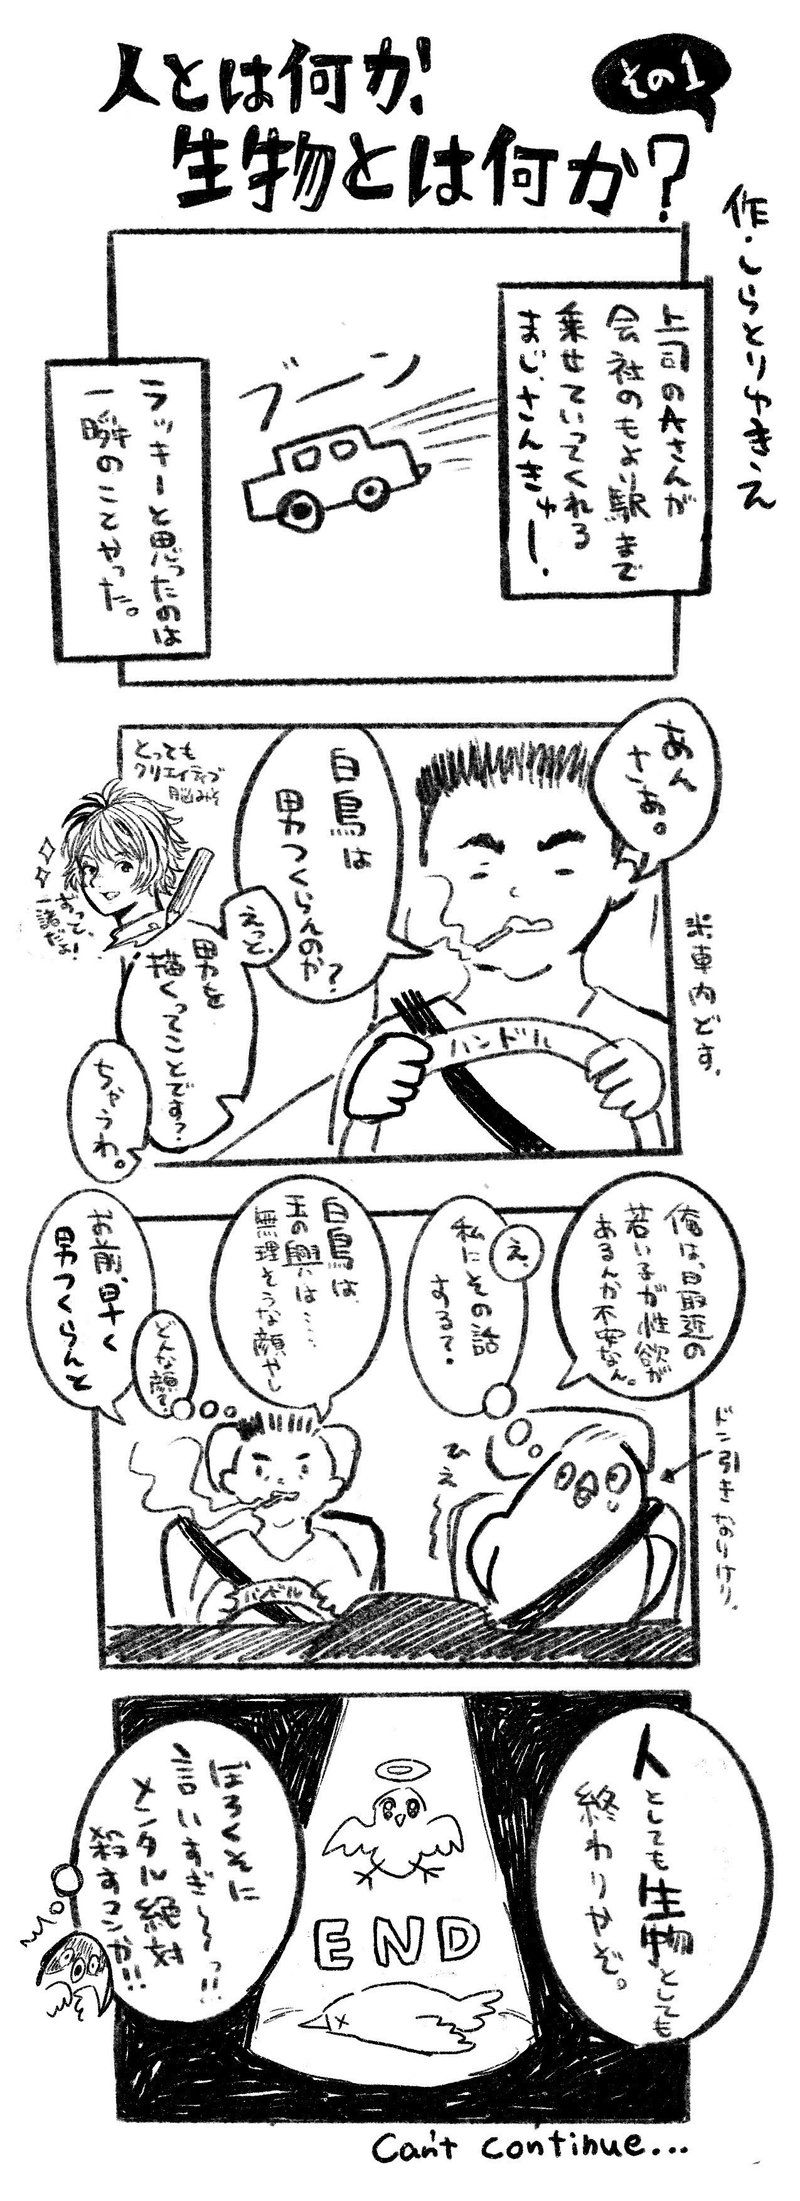 人とは何か、
生物とは何か?
その1
作・しらとりゆきえ
上司のAさんが
会社のもより駅まで
乗せていってくれる
まじ、さんきゅー。
ブーン
ラッキーと思ったのは
一瞬のことやった。
あん
さあ。
白鳥は
男つくらんのか?
えっと、
男を
描くってことです?
ちゃうわ。
とっても
クリエイティブ
脳みそ
ずっと、
一緒だよ!
ハンドル
※車内どす。
俺は、最近の
若い子が性欲が
あるんか不安なん。
え、
私にその話
するて。
白鳥は、
玉の輿は……
無理そうな顔やし
どんな顔て。
お前、早く
男つくらんと
ひえ〜〜
ドン引きなりけり。
ハンドル
人としても生物としても
終わりやぞ。
ぼろくそに
言いすぎ〜〜っ!!
メンタル絶対
殺すマンか!!
END
Can't continue...